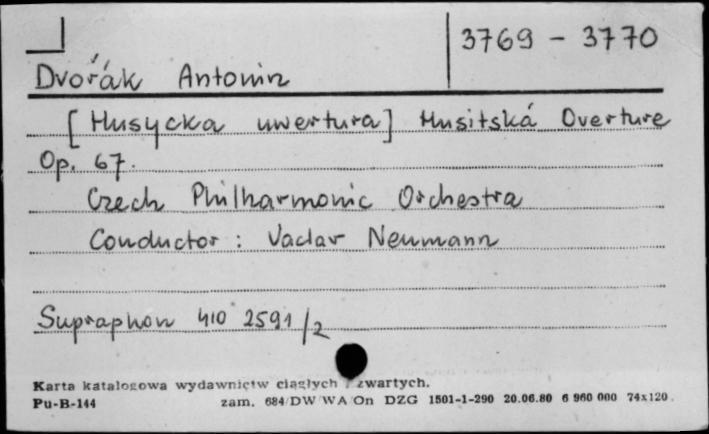 3769 - 3770
Dvořák Antonin
[Husycka uwertura] Husitská Overture
Op. 67.
Czech Philharmonic Orchestra
Conductor: Vaclav Neumann
Supraphon 410 2591/2
Karta katalogowa wydawnictw ciągłych i zwartych.
Pu-B-144 zam. 684/DW WA/On DZG 1501-1-290 20.06.80 6 960 000 74x120.